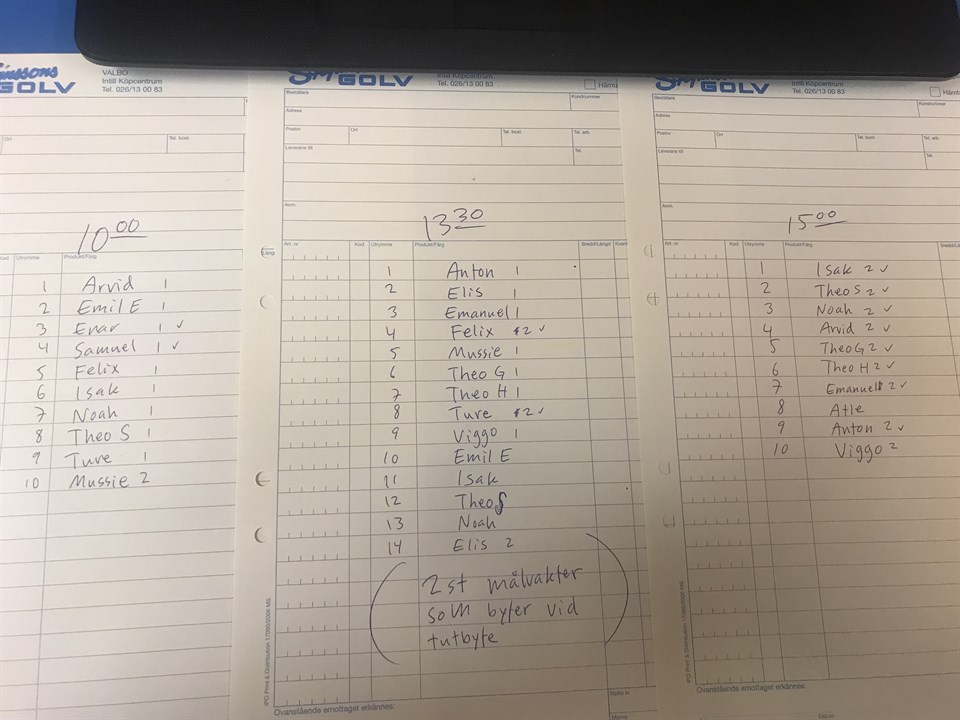 VALBO
Intill Köpcentrum
Tel. 026/13 00 83
GOLV
Ort
Tel. bost.
10 00
Kod
Utrymme
Produkt/Färg
1 Arvid 1
2 Emil E 1
3 Enar 1 ✓
4 Samuel 1 ✓
5 Felix 1
6 Isak 1
7 Noah 1
8 Theo S 1
9 Ture 1
10 Mussie 2
GOLV
Intill Köpcentrum
Tel. 026/13 00 83
Beställare
Kundnummer
Adress
Postnr
Ort
Tel. bost.
Tel. arb.
Leverans till
Tel.
Anm.
13 30
Art. nr
Kod
Utrymme
Produkt/Färg
Bredd/Längd
1 Anton 1
2 Elis 1
3 Emanuel 1
4 Felix 2 ✓
5 Mussie 1
6 Theo G 1
7 Theo H 1
8 Ture 2 ✓
9 Viggo 1
10 Emil E
11 Isak
12 Theo S
13 Noah
14 Elis 2
(2st målvakter
som byter vid
tutbyte)
IPG Print & Distribution
Ovanstående emottaget erkännes:
GOLV
Intill Köpcentrum
Tel. 026/13 00 83
Beställare
Kundnummer
Adress
Postnr
Ort
Tel. bost.
Tel. arb.
Leverans till
Tel.
Anm.
15 00
Art. nr
Kod
Utrymme
Produkt/Färg
1 Isak 2 ✓
2 Theo S 2 ✓
3 Noah 2 ✓
4 Arvid 2 ✓
5 Theo G 2 ✓
6 Theo H 2 ✓
7 Emanuel 2 ✓
8 Atle
9 Anton 2 ✓
10 Viggo 2
IPG Print & Distribution
Ovanstående emottaget erkännes:
Datum